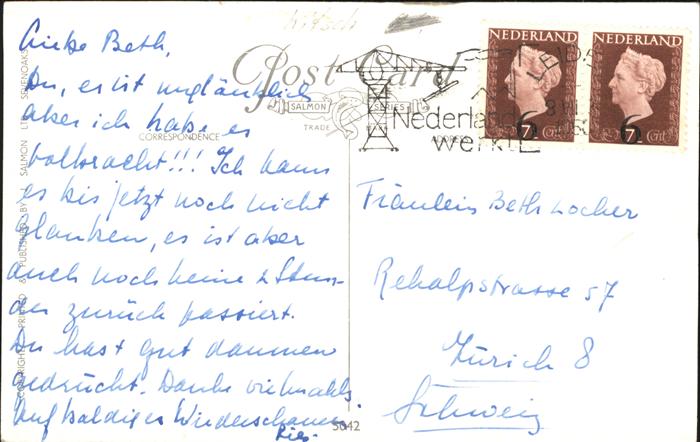 Liebe Beth,
Du, es ist unglaublich
aber ich habe es
vollbracht!!! Ich kann
es bis jetzt noch nicht
glauben, es ist aber
auch noch keine 2 Stun-
den zurück passiert.
Du hast gut daumen
gedrückt. Danke vielmahls.
Auf baldiges Wiederschauen
Post Card
SALMON SERIES
TRADE
CORRESPONDENCE
ADDRESS
COPYRIGHT PRINTED & PUBLISHED BY J SALMON LTD SEVENOAKS
5042
NEDERLAND
6
7 ct
NEDERLAND
6
7 ct
LEIDEN
Nederland
werkt
Fräulein Beth Locher
Rehalpstrasse 57
Zürich 8
Schweiz